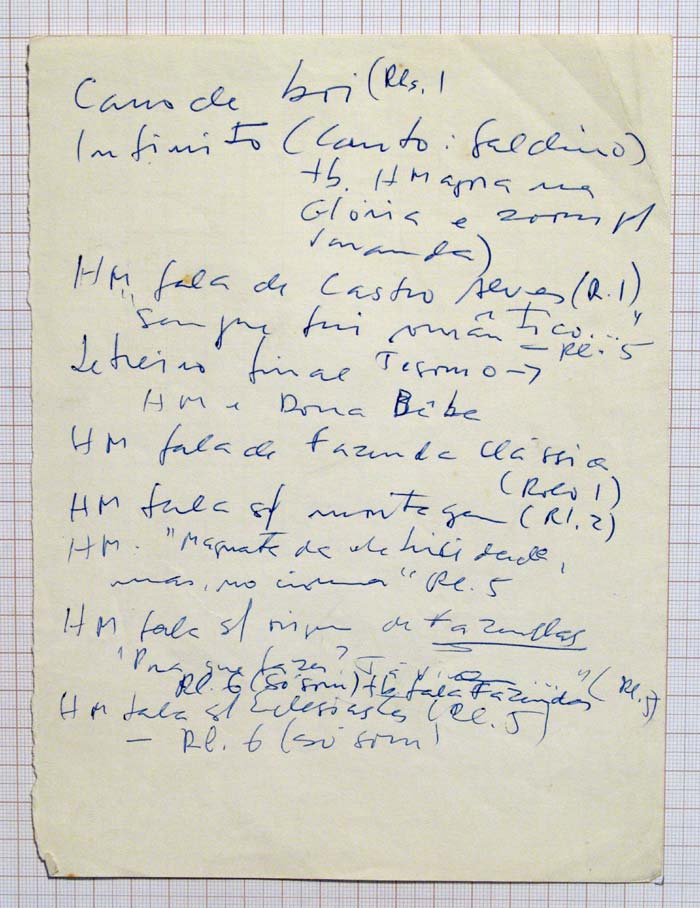 Carro de boi (Rls. 1
Infinito (Canto: Galdino)
tb. HM agora na
Glória e zoom p/
varanda)
HM fala de Castro Alves (R. 1)
"Sempre fui romântico..."
– Rl. 5
Letreiro final Tesouro →
HM e Dona Bêbe
HM fala de Fazenda Clássica
(Rolo 1)
HM fala s/ montagem (Rl. 2)
HM. "Magnata da eletricidade,
mas, no cinema" Rl. 5
HM fala s/ origem de Fazendas
"Pra que fazer? ..." (Rl. 5)
Rl. 6 (só som) tb fala Fazendas
HM fala s/ Eclesiastes (Rl. 5)
– Rl. 6 (só som)